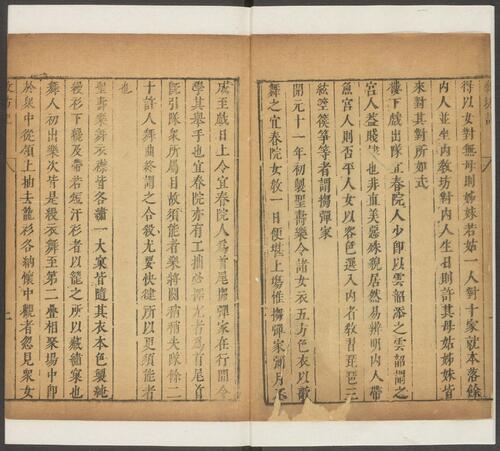 得以女對無母則姊妹若姑一人對十家就本落餘
內人並坐內教坊對內人生日則許其母姑姊妹皆
來對其對所如式
樓下戲出隊宜春院人少即以雲韶添之雲韶謂之
宮人蓋賤隸也非直美惡殊貌居然易辨明內人帶
魚宮人則否平人女以容色選入內者教習琵琶三
絃箜篌箏等者謂搊彈家
開元十一年初製聖壽樂令諸女衣五方色衣以歌
舞之宜春院女教一日便堪上塲惟搊彈家彌月不
成至戲日上令宜春院人為首尾搊彈家在行間令
學其舉手也宜春院亦有工拙必擇尤者為首尾首
既引隊眾所屬目故須能者樂將闋稍稍失隊餘二
十許人舞曲終謂之合殺尤要快健所以更須能者
也
聖壽樂舞衣襟皆各繡一大窠皆隨其衣本色製純
縵衫下纔及帶若短汗衫者以籠之所以藏繡窠也
舞人初出樂次皆是縵衣舞至第二疊相聚塲中即
於眾中從領上抽去籠衫各納懷中觀者忽見眾女